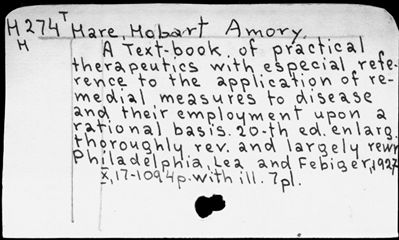 H274T Hare, Hobart Amory.
H A Text-book of practical
therapeutics with especial refe-
rence to the application of re-
medial measures to disease
and their employment upon a
rational basis. 20-th ed. enlarg.
thoroughly rev. and largely rewr
Philadelphia, Lea and Febiger, 1927
X, 17-1094p. with ill. 7pl.